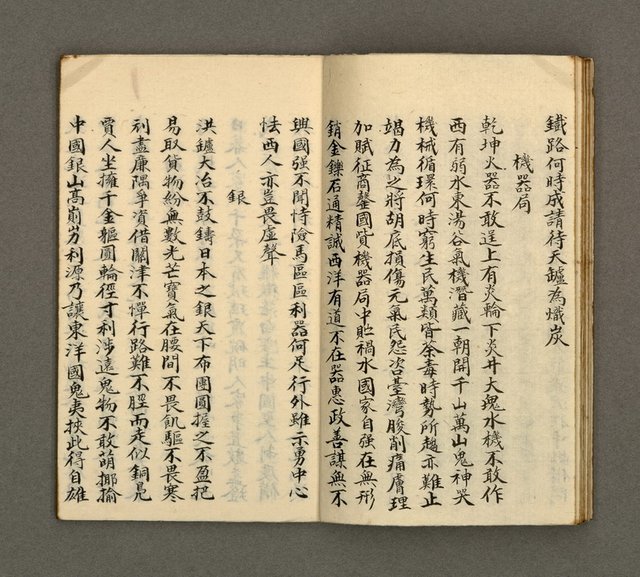 鐵路何時成請待天鑪為熾炭
機器局
乾坤火器不敢逞上有炎輪下炎井大塊水機不敢作
西有弱水東湯谷氣機潛藏一朝開千山萬山鬼神哭
機械循環何時窮生民萬類皆荼毒時勢所趨亦難止
竭力為之將胡底損傷元氣民怨咨臺灣朘削痛膚理
加賦征商罄國貲機器局中貯禍水國家自強在無形
銷金鑠石通精誠西洋有道不在器惠政善謀無不
興國强不聞恃險馬區區利器何足行外雖示勇中心
怯西人亦豈畏虛聲
銀
洪鑪大冶不鼓鑄日本之銀天下布團團握之不盈把
易取貨物紛無數光芒寶氣在腰間不畏飢驅不畏寒
利盡廉隅爭資借關津不憚行路難不脛而走似銅臭
賈人坐擁千金軀圓輪徑寸利涉遠鬼物不敢萌揶揄
中國銀山高崱屴利源乃讓東洋國鬼夷挾此得自雄